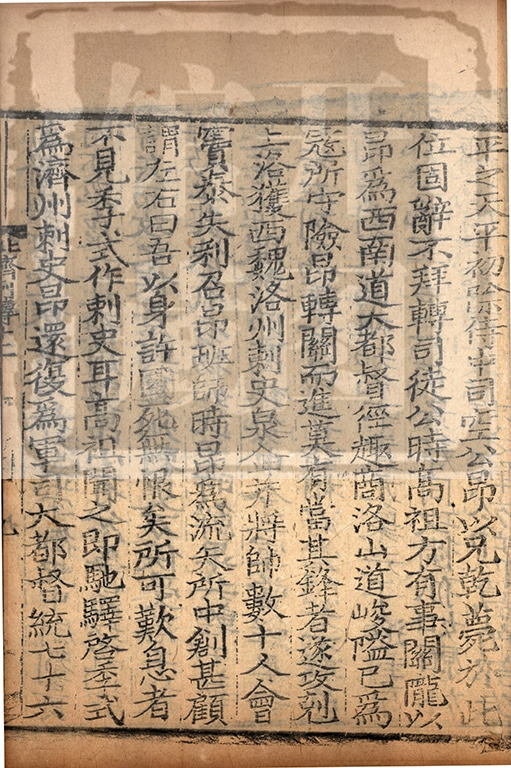 平之天平初除侍中司空公昂以兄乾薨於此
位固辭不拜轉司徒公時高祖方有事關隴以
昂為西南道大都督徑趣商洛山道峻隘已為
寇所守險昂轉鬬而進莫有當其鋒者遂攻剋
上洛獲西魏洛州刺史泉企并將帥數十人會
竇泰失利召昂班師時昂為流矢所中創甚顧
謂左右曰吾以身許國死無恨矣所可歎息者
不見季式作刺史耳高祖聞之即馳驛啓季式
為濟州刺史昂還復為軍司大都督統七十六